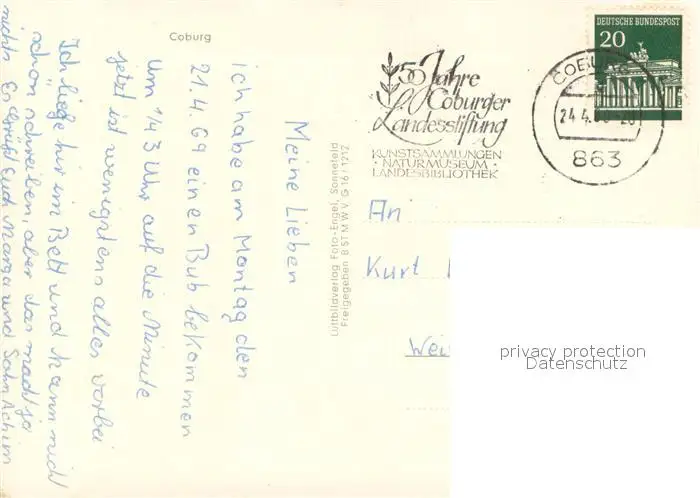 Coburg
Meine Lieben
ich habe am Montag den
21.4.69 einen Bub bekommen
um 1/4 3 Uhr auf die Minute
jetzt ist wenigstens alles vorbei
Ich liege hir im Bett und kann nicht
schon schreiben aber das macht ja
nichts Es grüßt Euch Marga und Sohn Achim
Luftbildverlag Foto-Engel, Sonnefeld
Freigegeben B ST M WV G 16 / 1212
50 Jahre
Coburger
Landesstiftung
KUNSTSAMMLUNGEN
· NATURMUSEUM ·
LANDESBIBLIOTHEK
DEUTSCHE BUNDESPOST
20
COBURG
24.4.
863
An
Kurt
privacy protection
Datenschutz